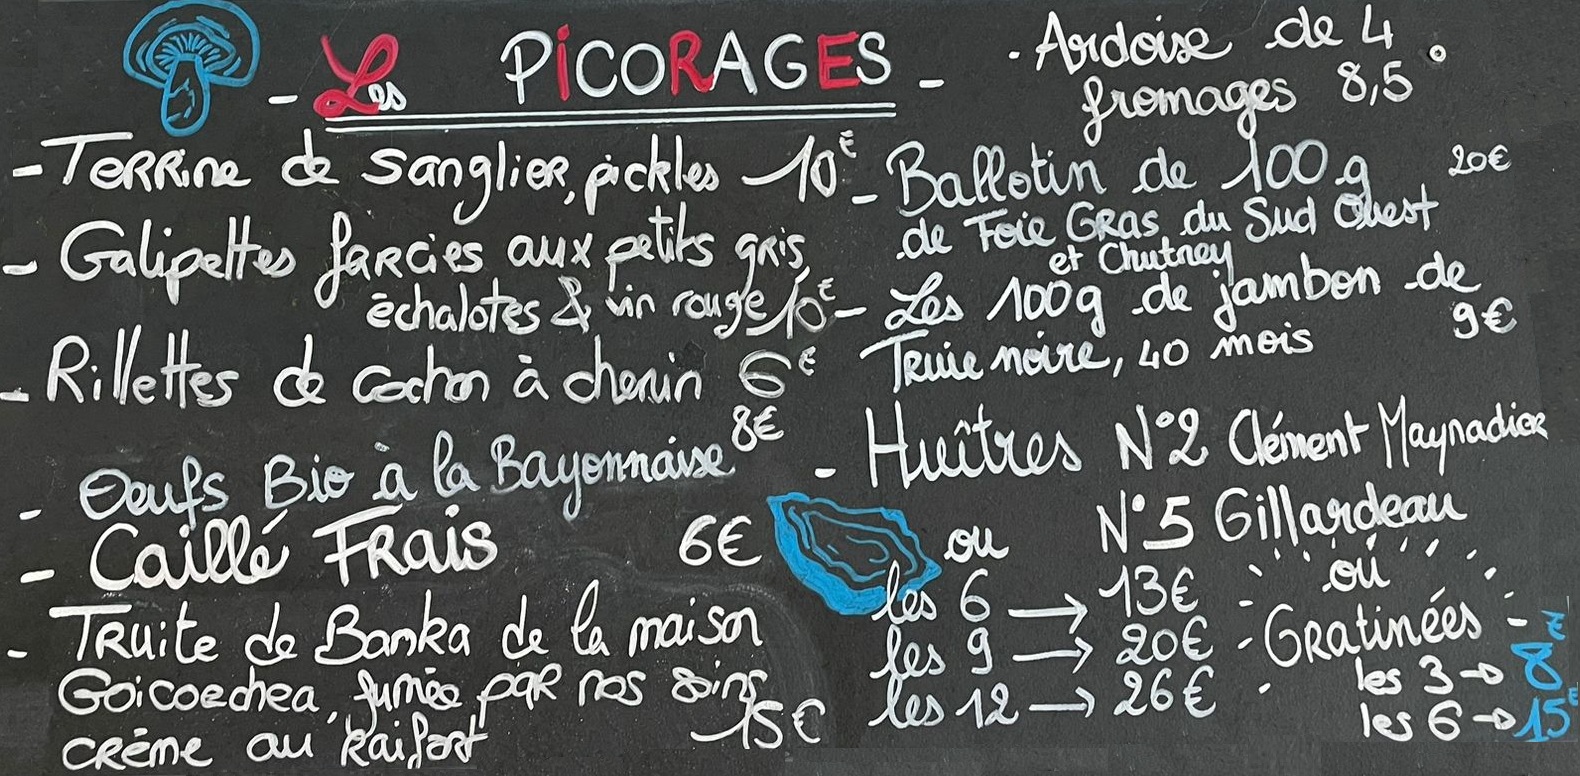 - Les PiCORAGES -
- Terrine de sanglier, pickles 10€
- Galipettes farcies aux petits gris,
échalotes & vin rouge 10€
- Rillettes de cochon à chenin 6€
- Oeufs Bio à la Bayonnaise 8€
- Caillé Frais 6€
- Truite de Banka de la maison
Goicoechea, fumée par nos soins,
crème au Raifort 15€
- Ardoise de 4
fromages 8,5
- Ballotin de 100 g 20€
de Foie Gras du Sud Ouest
et Chutney
- Les 100g de jambon de
Truie noire, 40 mois 9€
- Huîtres N°2 Clément Maynadier
ou N°5 Gillardeau
les 6 → 13€
les 9 → 20€
les 12 → 26€
ou
Gratinées
les 3 → 8€
les 6 → 15€